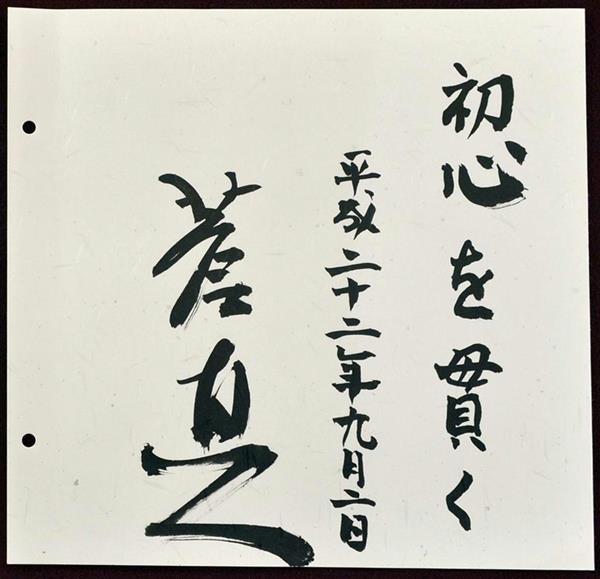 初心を貫く
平成二十二年九月二日